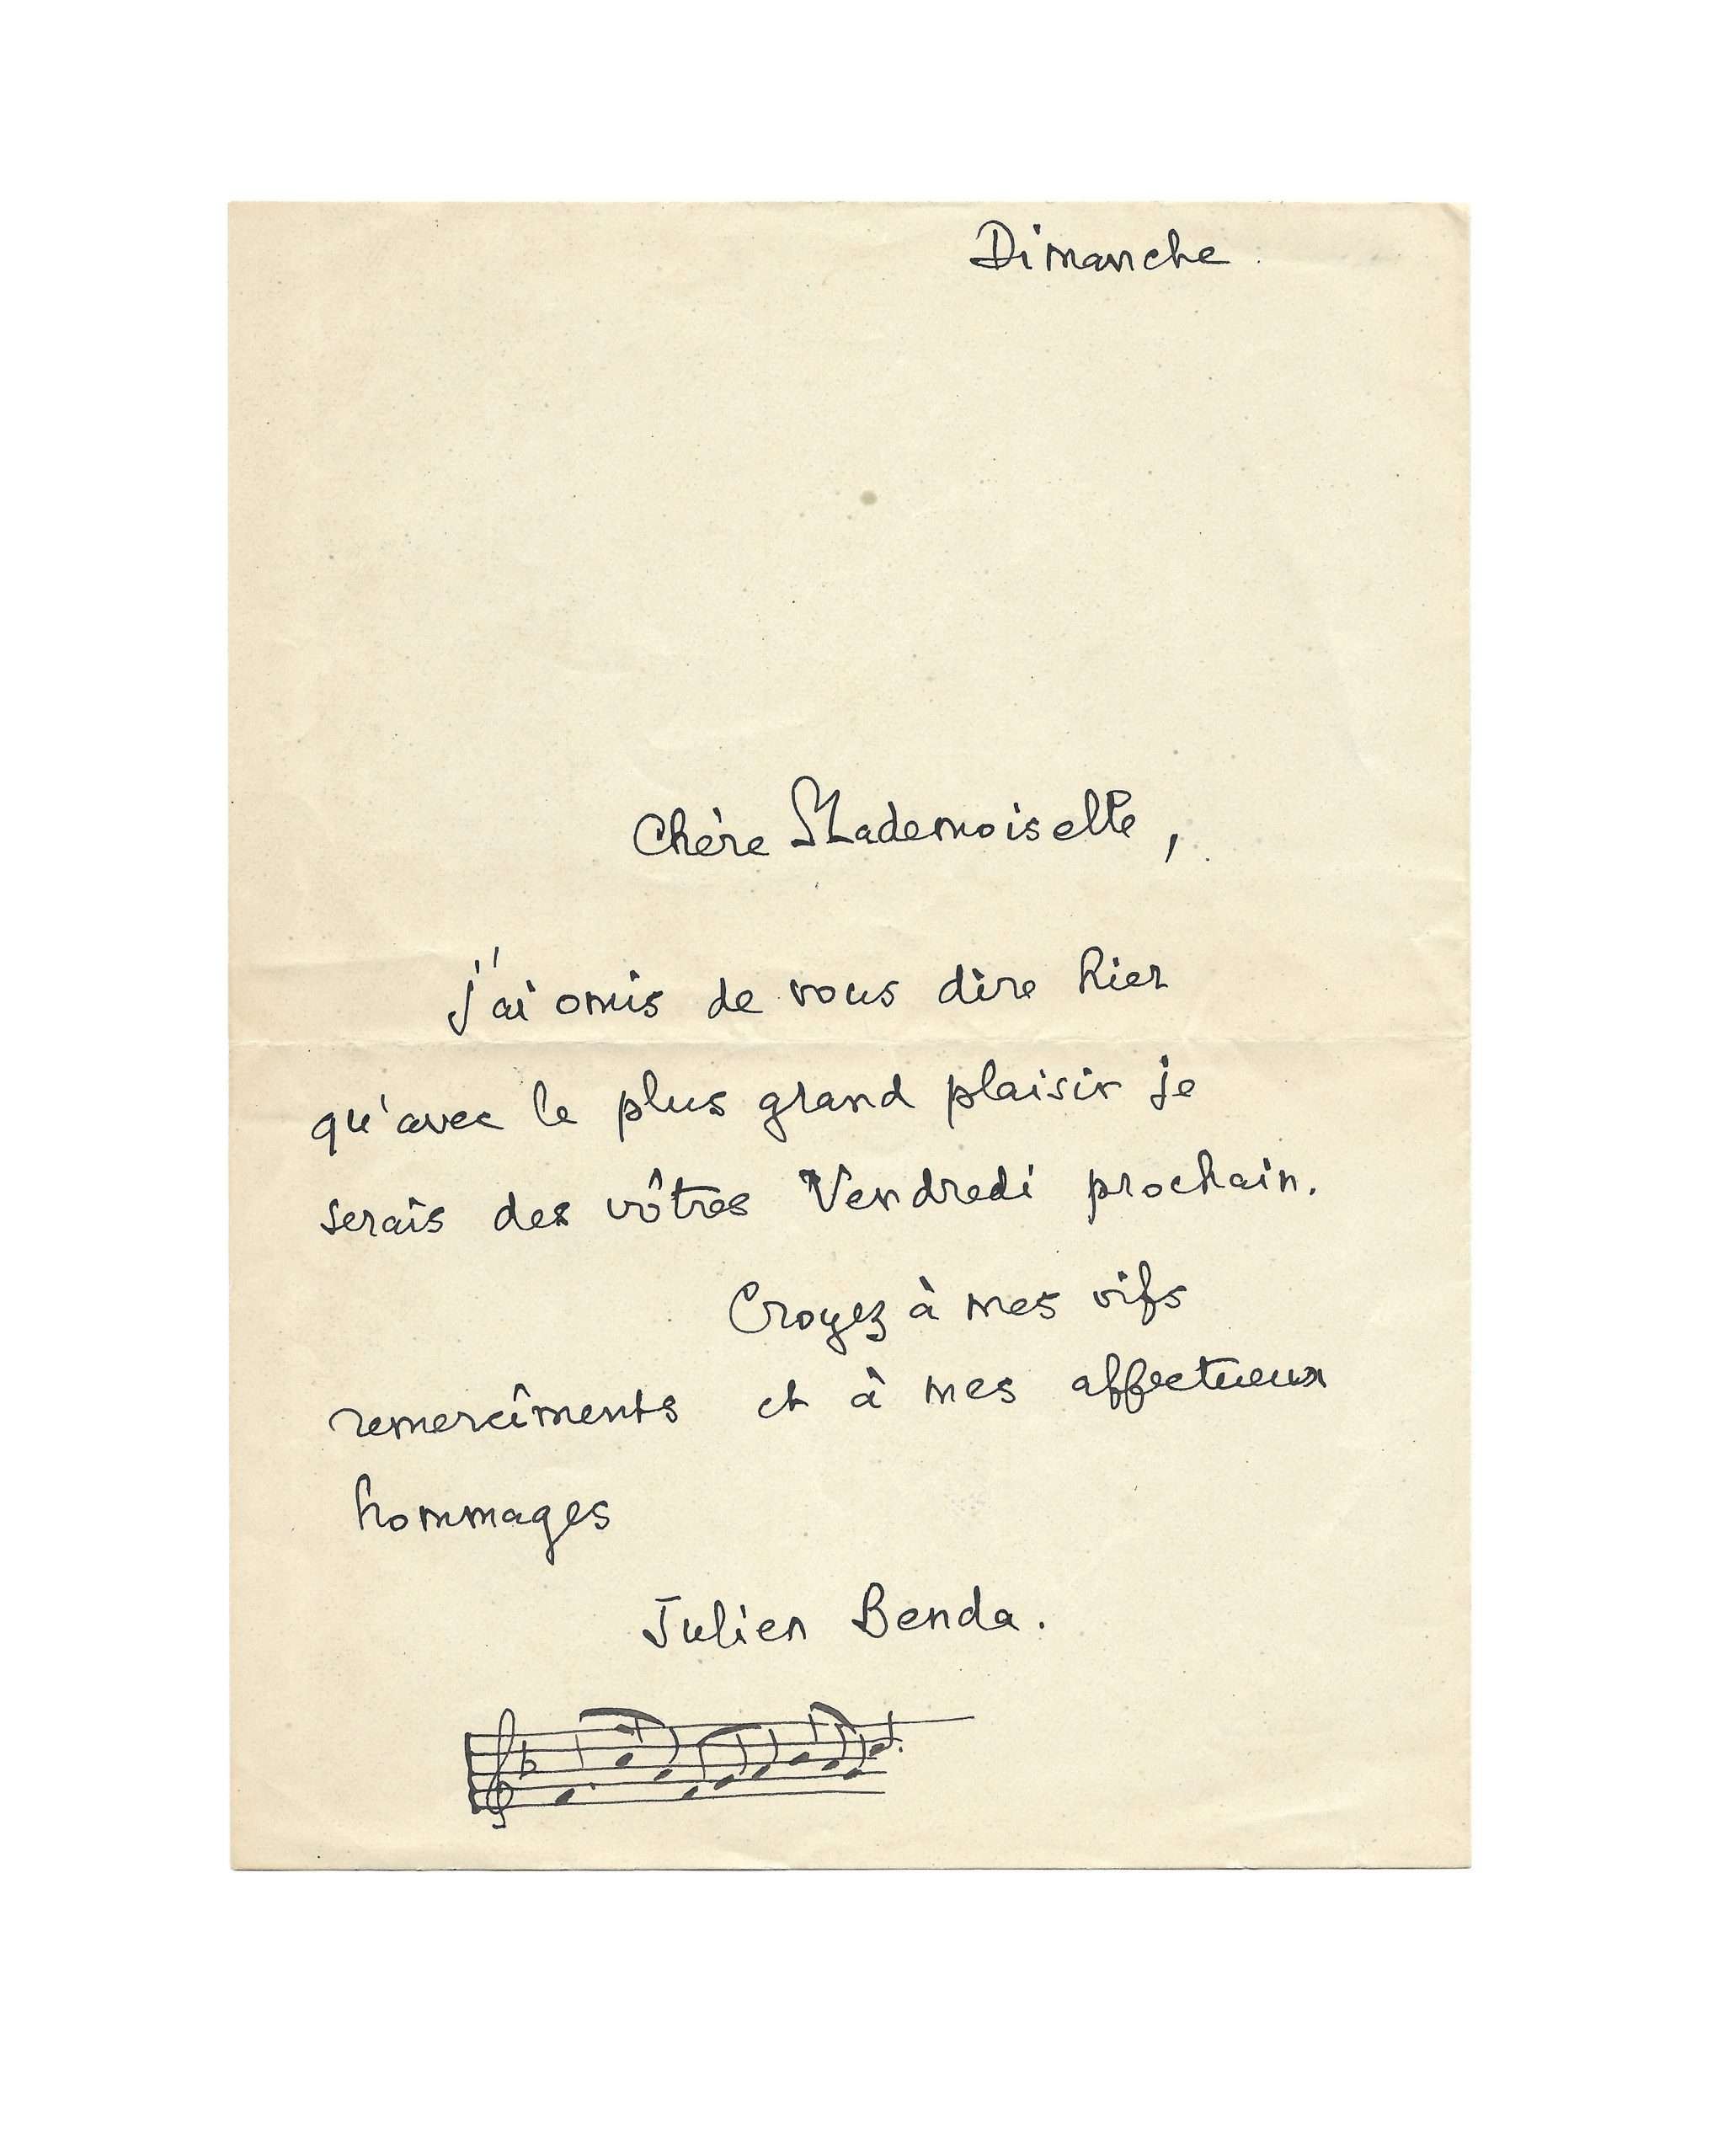 Dimanche
Chère Mademoiselle,
j'ai omis de vous dire hier
qu'avec le plus grand plaisir je
serais des vôtres Vendredi prochain.
Croyez à mes vifs
remercîments et à mes affectueux
hommages
Julien Benda.